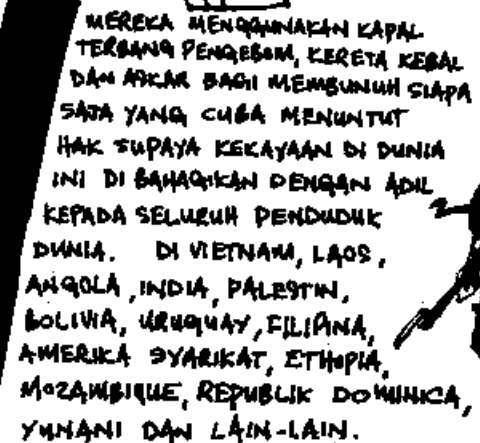 MEREKA MENGGUNAKAN KAPAL
TERBANG PENGEBOM, KERETA KEBAL
DAN ASKAR BAGI MEMBUNUH SIAPA
SAJA YANG CUBA MENUNTUT
HAK SUPAYA KEKAYAAN DI DUNIA
INI DI BAHAGIKAN DENGAN ADIL
KEPADA SELURUH PENDUDUK
DUNIA. DI VIETNAM, LAOS,
ANGOLA, INDIA, PALESTIN,
BOLIVIA, URUGUAY, FILIPINA,
AMERIKA SYARIKAT, ETHOPIA,
MOZAMBIQUE, REPUBLIK DOMINICA,
YUNANI DAN LAIN-LAIN.